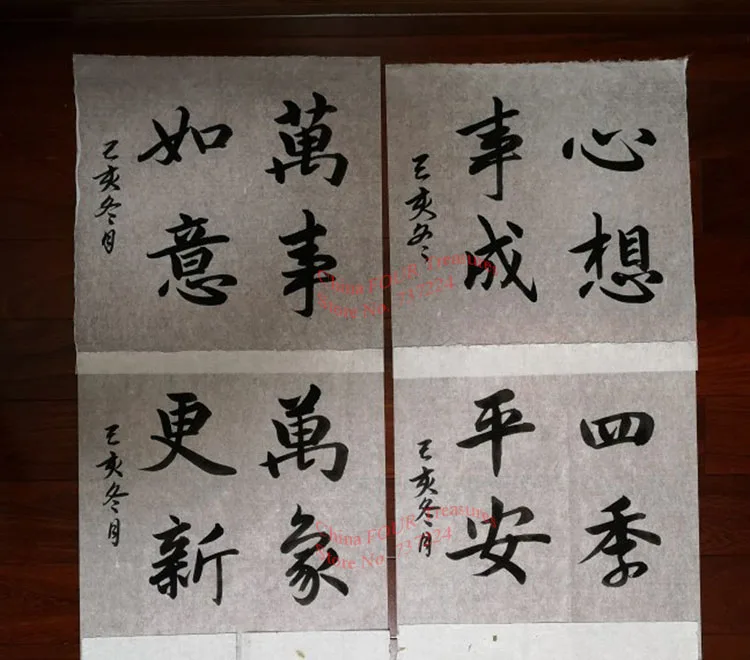 萬事
如意
己亥冬月
心想
事成
己亥冬
萬象
更新
己亥冬月
四季
平安
己亥冬月
China FOUR Treasures
Store No.
China FOUR Treasures
Store No.